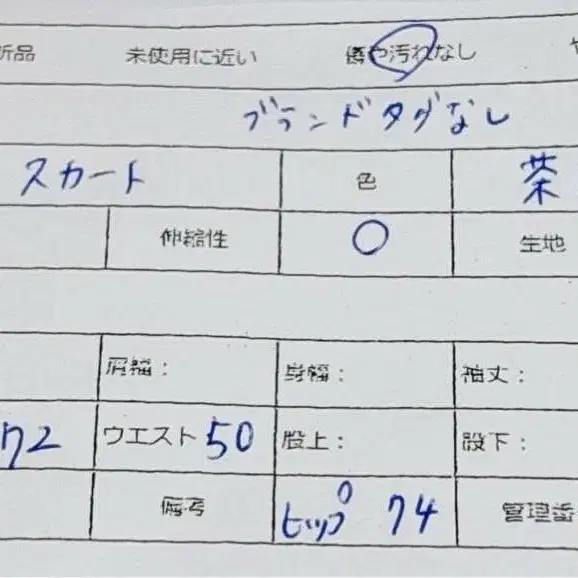 新品 未使用に近い 傷や汚れなし
ブランドタグなし
スカート 色 茶
伸縮性 ○ 生地
肩幅： 身幅： 袖丈：
72 ウエスト 50 股上： 股下：
備考 ヒップ 74 管理番